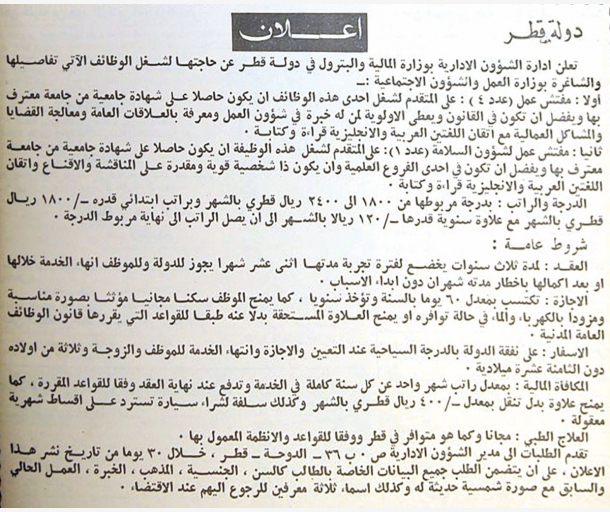 دولة قطر
اعلان
تعلن ادارة الشؤون الادارية بوزارة المالية والبترول في دولة قطر عن حاجتها لشغل الوظائف الآتي تفاصيلها
والشاغرة بوزارة العمل والشؤون الاجتماعية :ـ
أولا : مفتش عمل (عدد ٤) : على المتقدم لشغل احدى هذه الوظائف ان يكون حاصلا على شهادة جامعية من جامعة معترف
بها ويفضل ان تكون في القانون ويعطى الاولوية لمن له خبرة في شؤون العمل ومعرفة بالعلاقات العامة ومعالجة القضايا
والمشاكل العمالية مع اتقان اللغتين العربية والانجليزية قراءة وكتابة .
ثانيا : مفتش عمل لشؤون السلامة (عدد ١): على المتقدم لشغل هذه الوظيفة ان يكون حاصلا على شهادة جامعية من جامعة
معترف بها ويفضل ان تكون في احدى الفروع العلمية وان يكون ذا شخصية قوية ومقدرة على المناقشة والاقناع واتقان
اللغتين العربية والانجليزية قراءة وكتابة .
الدرجة والراتب : بدرجة مربوطها من ١٨٠٠ الى ٢٤٠٠ ريال قطري بالشهر وبراتب ابتدائي قدره ــ/١٨٠٠ ريال
قطري بالشهر مع علاوة سنوية قدرها ــ/١٢٠ ريالا بالشهر الى ان يصل الراتب الى نهاية مربوط الدرجة .
شروط عامة :
العقد : لمدة ثلاث سنوات يخضع لفترة تجربة مدتها اثنى عشر شهرا يجوز للدولة وللموظف انهاء الخدمة خلالها
او بعد اكمالها باخطار مدته شهران دون ابداء الاسباب .
الاجازة : تكتسب بمعدل ٦٠ يوما بالسنة وتؤخذ سنويا ، كما يمنح الموظف سكنا مجانيا مؤثثا بصورة مناسبة
ومزودا بالكهرباء والماء في حالة توافره او يمنح العلاوة المستحقة بدلا عنه طبقا للقواعد التي يقررها قانون الوظائف
العامة المدنية .
الاسفار : على نفقة الدولة بالدرجة السياحية عند التعيين والاجازة وانتهاء الخدمة للموظف والزوجة وثلاثة من اولاده
دون الثامنة عشرة ميلادية .
المكافاة المالية : بمعدل راتب شهر واحد عن كل سنة كاملة في الخدمة وتدفع عند نهاية العقد وفقا للقواعد المقررة ، كما
يمنح علاوة بدل تنقل بمعدل ــ/٤٠٠ ريال قطري بالشهر وكذلك سلفة لشراء سيارة تسترد على اقساط شهرية
معقولة .
العلاج الطبي : مجانا وكما هو متوافر في قطر ووفقا للقواعد والانظمة المعمول بها .
تقدم الطلبات الى مدير الشؤون الادارية ص ٠ ب ٣٦ ــ الدوحة ــ قطر ، خلال ٣٠ يوما من تاريخ نشر هذا
الاعلان ، على ان يتضمن الطلب جميع البيانات الخاصة بالطالب كالسن ، الجنسية ، المذهب ، الخبرة ، العمل الحالي
والسابق مع صورة شمسية حديثة له وكذلك اسماء ثلاثة معرفين للرجوع اليهم عند الاقتضاء .